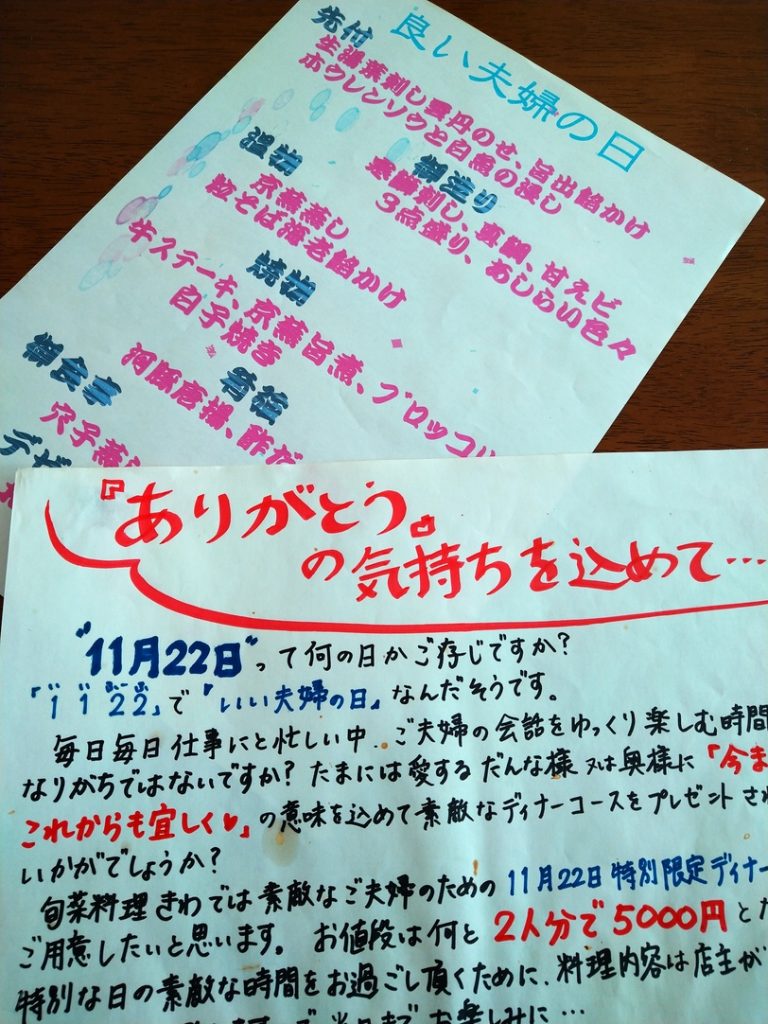 良い夫婦の日
先付
生湯葉刺し雲丹のせ、旨出餡かけ
ホウレンソウと白魚の浸し
御造り
寒鰤刺し、真鯛、甘えビ
3点盛り、あしらい色々
温物
京蕪蒸し
粒そば海老餡かけ
焼物
牛ステーキ、京蕪旨煮、ブロッコリ
白子焼き
肴種
河豚唐揚、酢だ
御食事
穴子蒸
デザ
『ありがとう』
の気持ちを込めて…
"11月22日"って何の日かご存じですか?
「1122」で『いい夫婦の日』なんだそうです。
毎日毎日仕事にと忙しい中、ご夫婦の会話をゆっくり楽しむ時間
なりがちではないですか?たまには愛するだんな様又は奥様に「今ま
これからも宜しく♥」の意味を込めて素敵なディナーコースをプレゼントされ
いかがでしょうか?
旬菜料理きわでは素敵なご夫婦のための11月22日特別限定ディナー
ご用意したいと思います。お値段は何と2人分で5000円とた
特別な日の素敵な時間をお過ごし頂くために、料理内容は店主が
当日までお楽しみに…